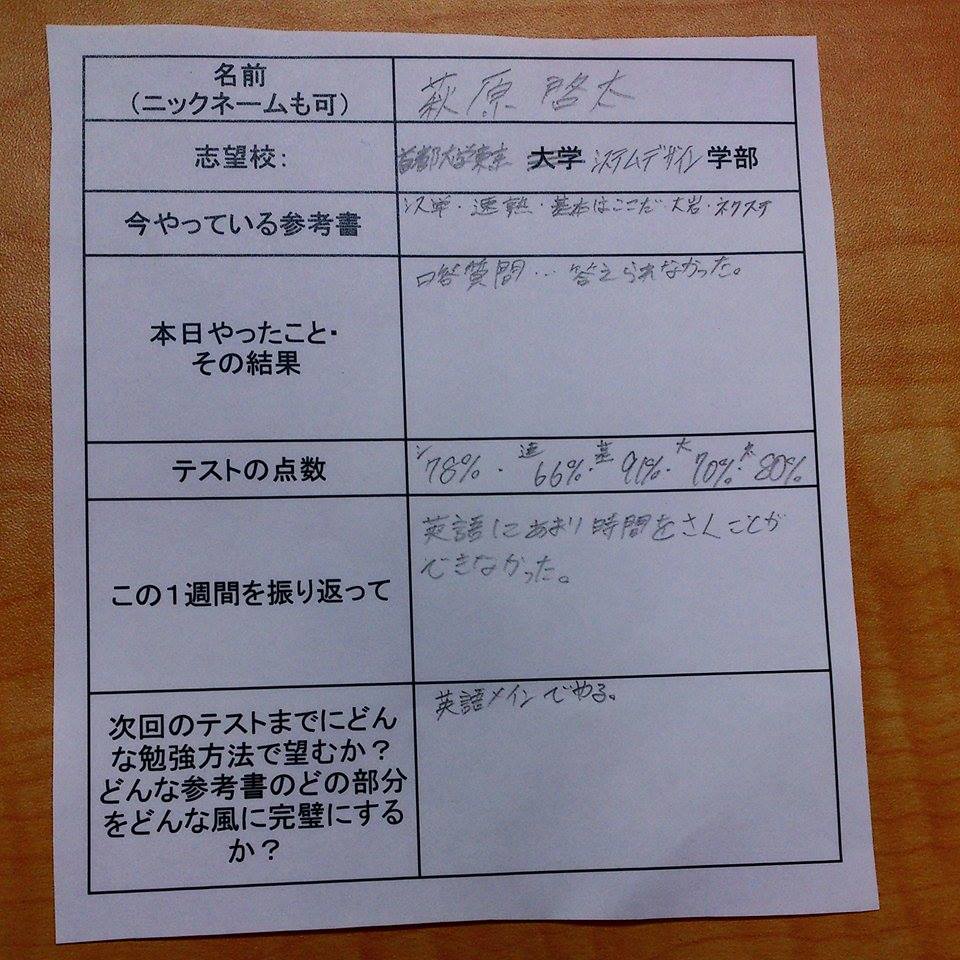 名前
(ニックネームも可)
萩原 啓太
志望校:
首都大学東京 大学 システムデザイン 学部
今やっている参考書
シス単・速熟・基本はここだ・大岩・ネクステ
本日やったこと・
その結果
口答質問… 答えられなかった。
テストの点数
シ 78%・速 66%・基 91%・大 70%・ネ 80%
この1週間を振り返って
英語にあまり時間をさくことが
できなかった。
次回のテストまでにどん
な勉強方法で望むか?
どんな参考書のどの部分
をどんな風に完璧にする
か?
英語メインでやる。